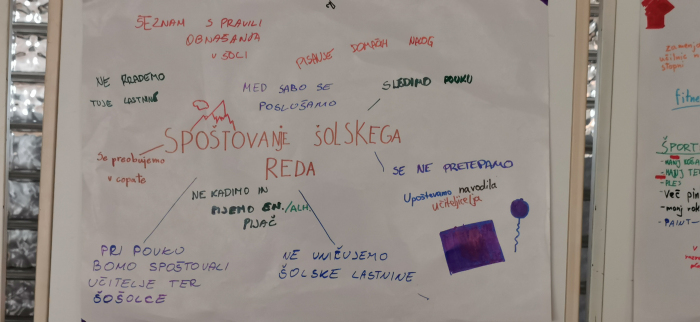 SEZNAM S PRAVILI
OBNAŠANJA
V ŠOLI
PISANJE DOMAČIH NALOG
NE KRADEMO
TUJE LASTNINE
MED SABO SE
POSLUŠAMO
SLEDIMO POUKU
SPOŠTOVANJE ŠOLSKEGA
REDA
Se preobujemo
v copate
SE NE PRETEPAMO
NE KADIMO IN
PIJEMO EN./ALH.
PIJAČ
Upoštevamo navodila
učitelja
PRI POUKU
BOMO SPOŠTOVALI
UČITELJE TER
SOŠOLCE
NE UNIČUJEMO
ŠOLSKE LASTNINE
fitne
ŠPORT
več pin
PAINT